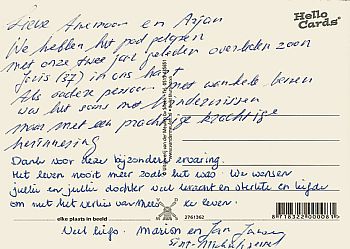 Lieve Anemoon en Arjan
Hello Cards
We hebben het pad gelopen
met onze twee jaar geleden overleden zoon
Joris (37) in ons hart
Als oudere persoon met wankele benen
was het soms met hindernissen
maar met een prachtige krachtige
herinnering
Dank voor deze bijzondere ervaring.
Het leven nooit meer zoals het was. We wensen
jullie en jullie dochter veel kracht en sterkte en liefde
om met het verlies van Mees te leven.
elke plaats in beeld
2761362
8 718322 000081
Veel liefs. Marion en Jan